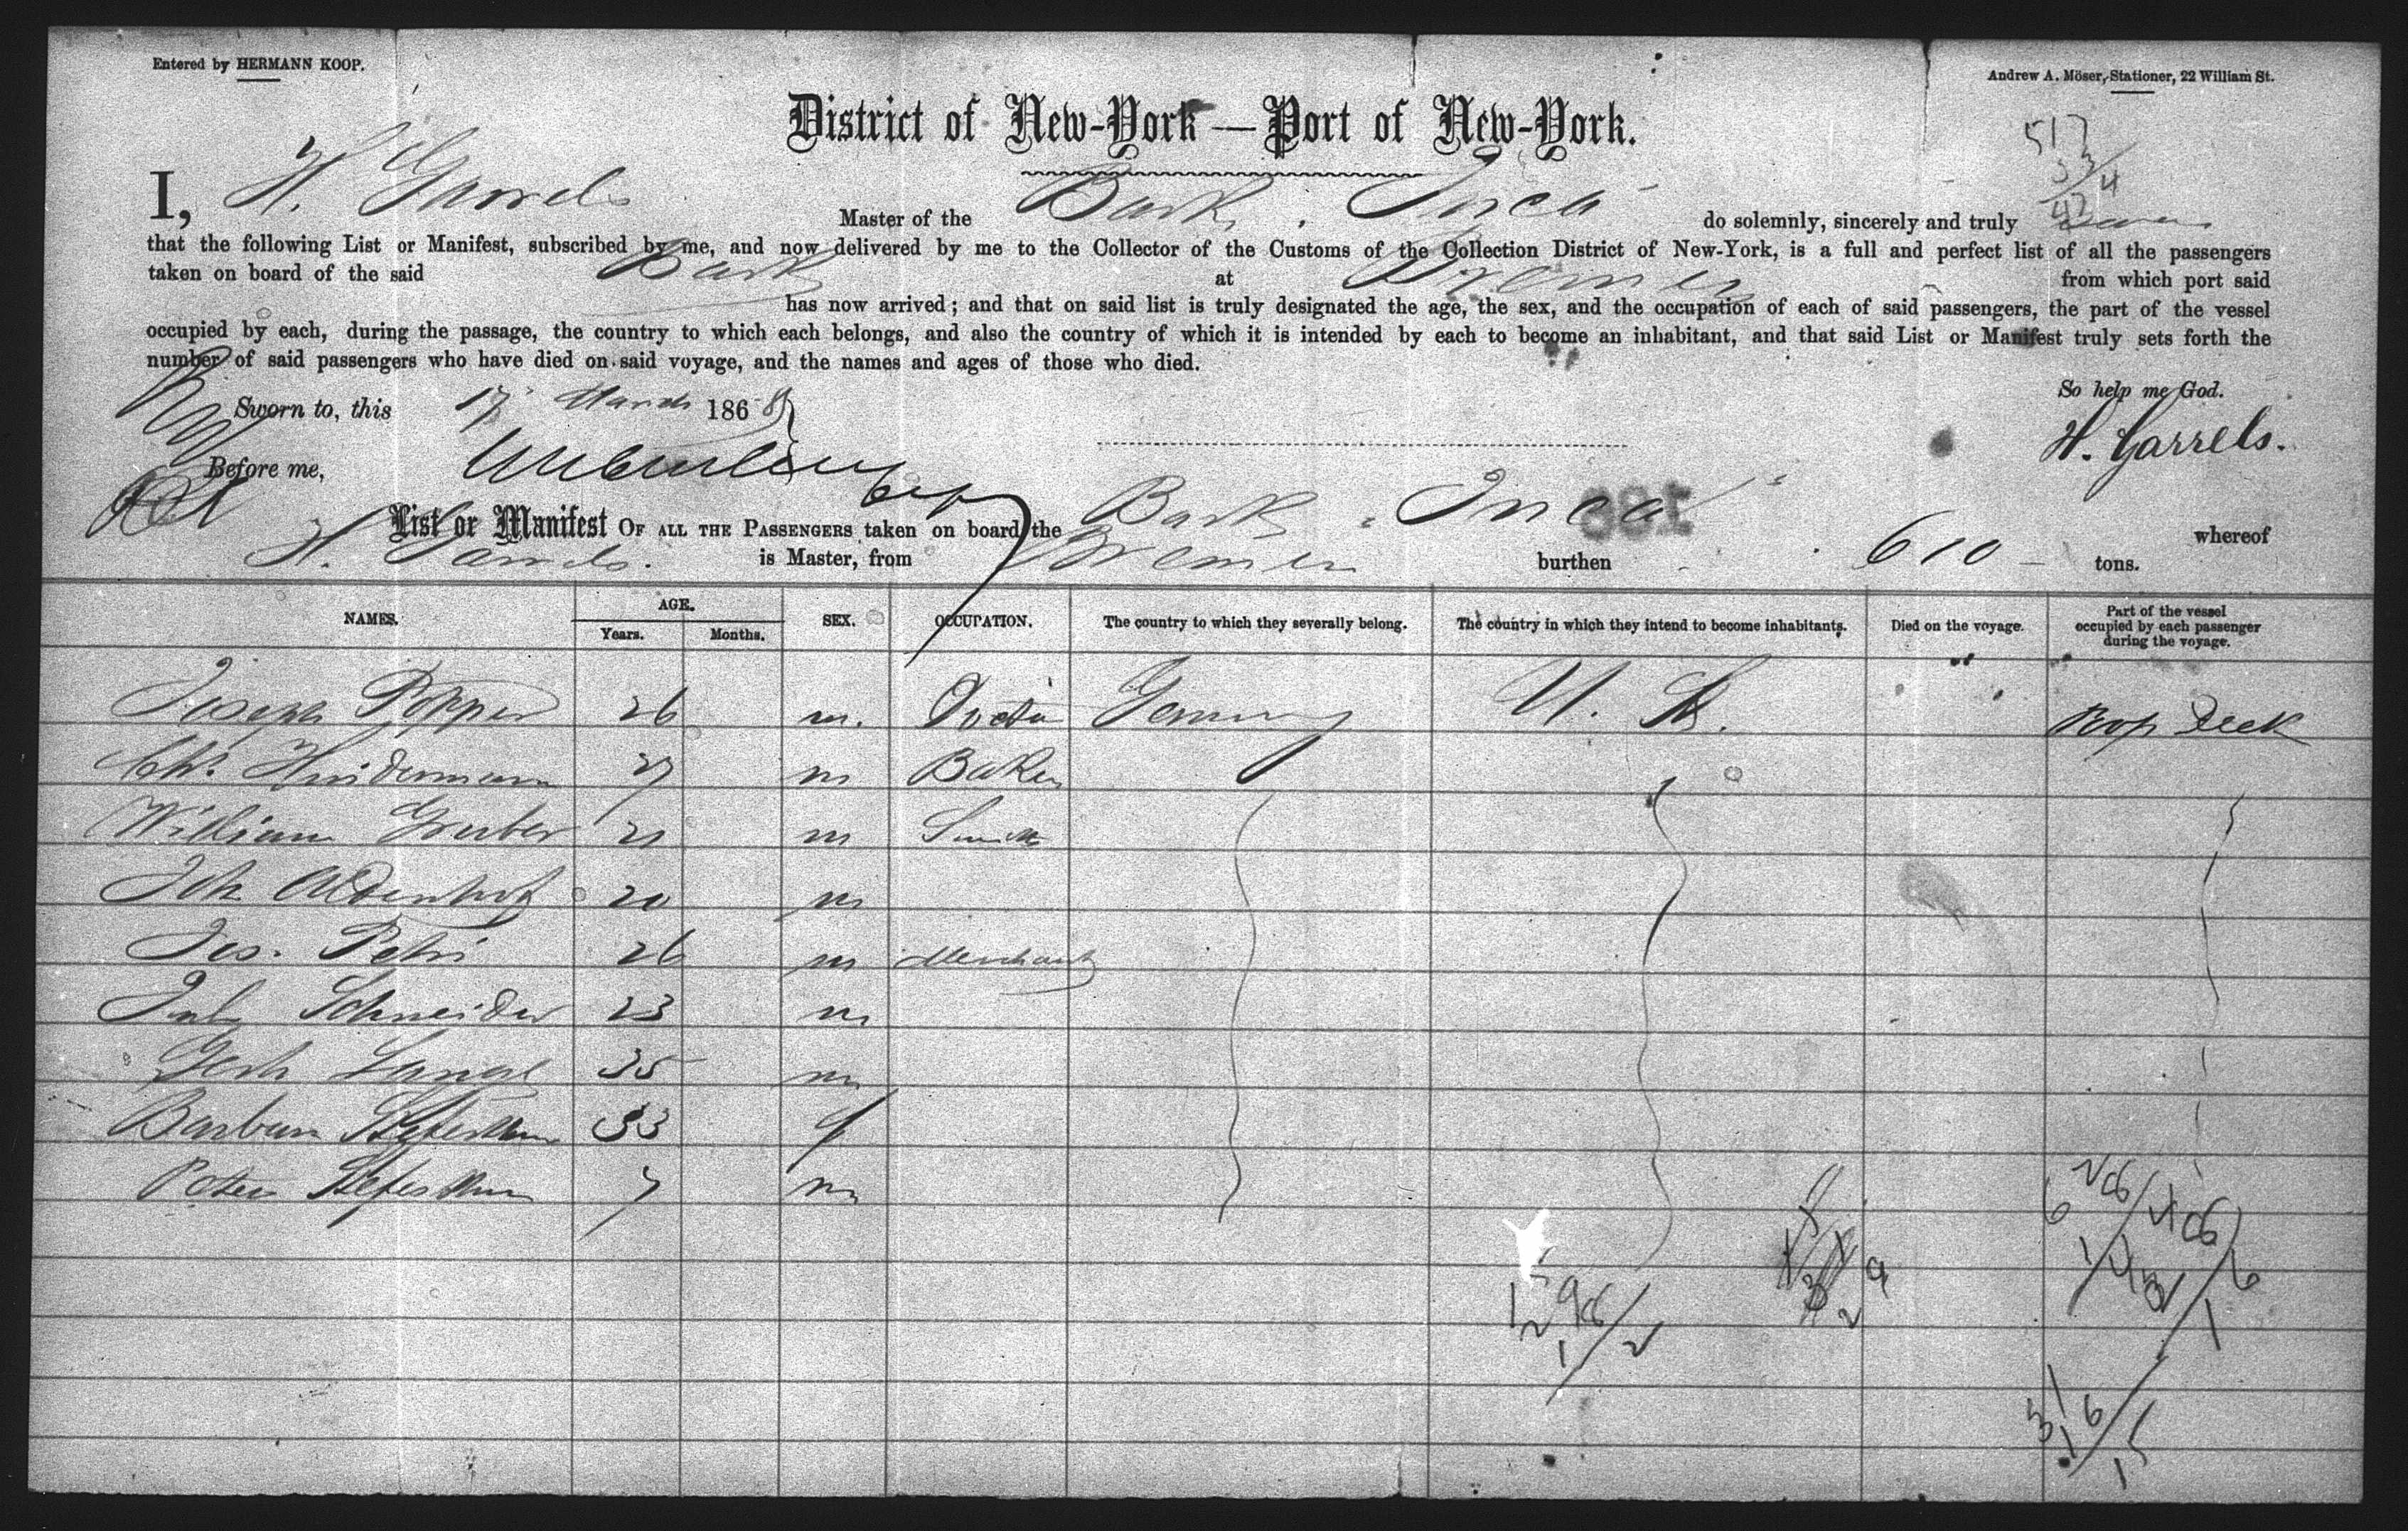 Entered by HERMANN KOOP.
Andrew A. Möser, Stationer, 22 William St.
District of New-York — Port of New-York.
I, H. Garrels Master of the Bark "Inca" do solemnly, sincerely and truly Swear
that the following List or Manifest, subscribed by me, and now delivered by me to the Collector of the Customs of the Collection District of New-York, is a full and perfect list of all the passengers
taken on board of the said Bark at Bremen from which port said
has now arrived; and that on said list is truly designated the age, the sex, and the occupation of each of said passengers, the part of the vessel
occupied by each, during the passage, the country to which each belongs, and also the country of which it is intended by each to become an inhabitant, and that said List or Manifest truly sets forth the
number of said passengers who have died on said voyage, and the names and ages of those who died.
So help me God.
Sworn to, this 17 March 1868
H. Garrels.
Before me,
List or Manifest OF ALL THE PASSENGERS taken on board the Bark "Inca" whereof
H. Garrels. is Master, from Bremen burthen 610 tons.
NAMES. AGE. Years. Months. SEX. OCCUPATION. The country to which they severally belong. The country in which they intend to become inhabitants. Died on the voyage. Part of the vessel occupied by each passenger during the voyage.
Joseph Popper 26 m. Doctor Germany U. S. Poop Deck
Chs. 27 m Baker
William Gruber 21 m Smith
Joh Aldenhof 20 m
Jos. Petri 26 m Merchant
Schneider 23 m
Gerh Lange 35 m
Barbara 33 f
Peter 7 m